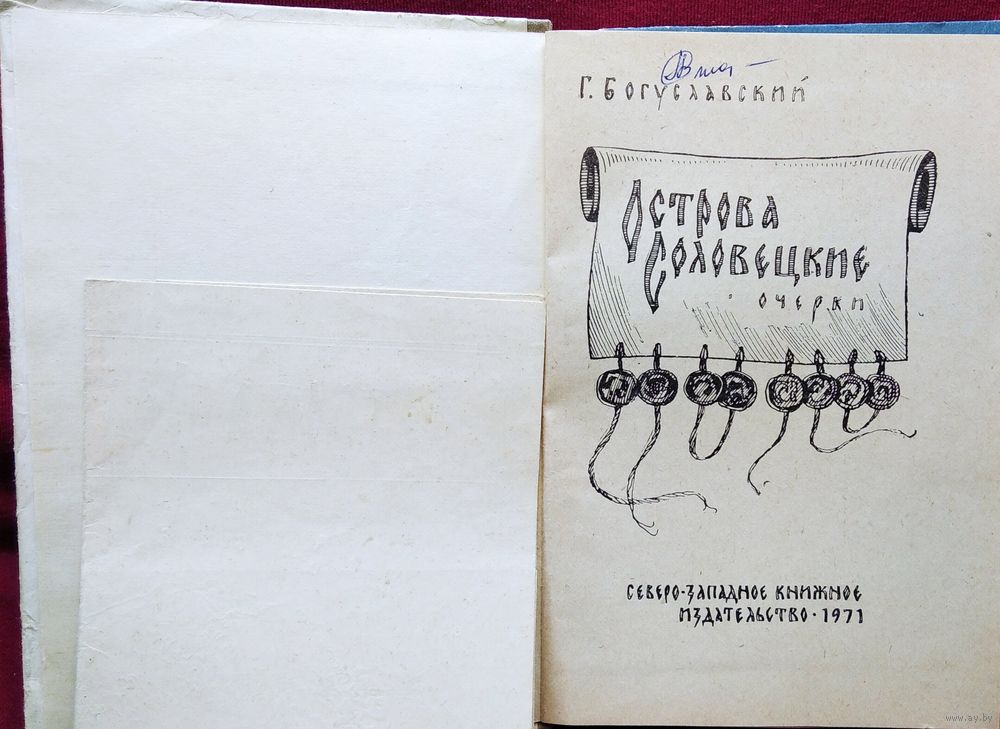 Г. Богуславский
Острова
Соловецкие
очерки
Северо-Западное книжное
издательство · 1971
www.ay.by